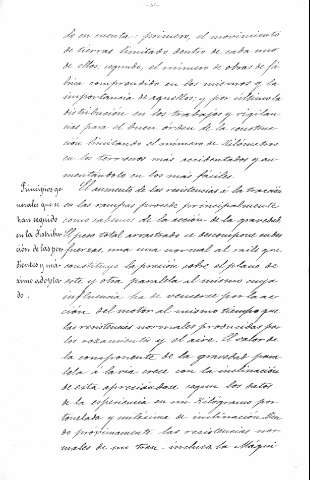 do en cuenta: primero, el movimiento
de tierras limitado dentro de cada uno
de ellos; segundo, el número de obras de fá-
brica comprendido en los mismos y la
importancia de aquellos; y por último la
distribución en los trabajos y vigilan-
cias para el buen orden de la construc-
ción limitando el número de Kilómetros
en los terrenos mas accidentados y au-
mentándolo en los más fáciles.
Principios ge-
nerales que se
han seguido
en la distribu-
ción de las pen-
dientes y má-
ximo adopta-
do.
El aumento de las resistencias á la tracción
en las rampas procede principalmente
como sabemos de la acción de la gravedad.
El peso total arrastrado se descompone en dos
fuerzas, una una normal al raíl que
constituye la presión sobre el plano de
este y otra paralela al mismo cuya
influencia ha de vencerse por la ac-
ción del motor al mismo tiempo que
las resistencias normales producidas por
los rozamientos y el aire. El valor de
la componente de la gravedad para-
lela á la vía crece con la inclinación
de esta apreciándose segun los datos
de la experiencia en un Kilógramo por
tonelada y milésima de inclinación. Sien-
do proximamente las resistencias nor-
males de un tren inclusa la Máqui-